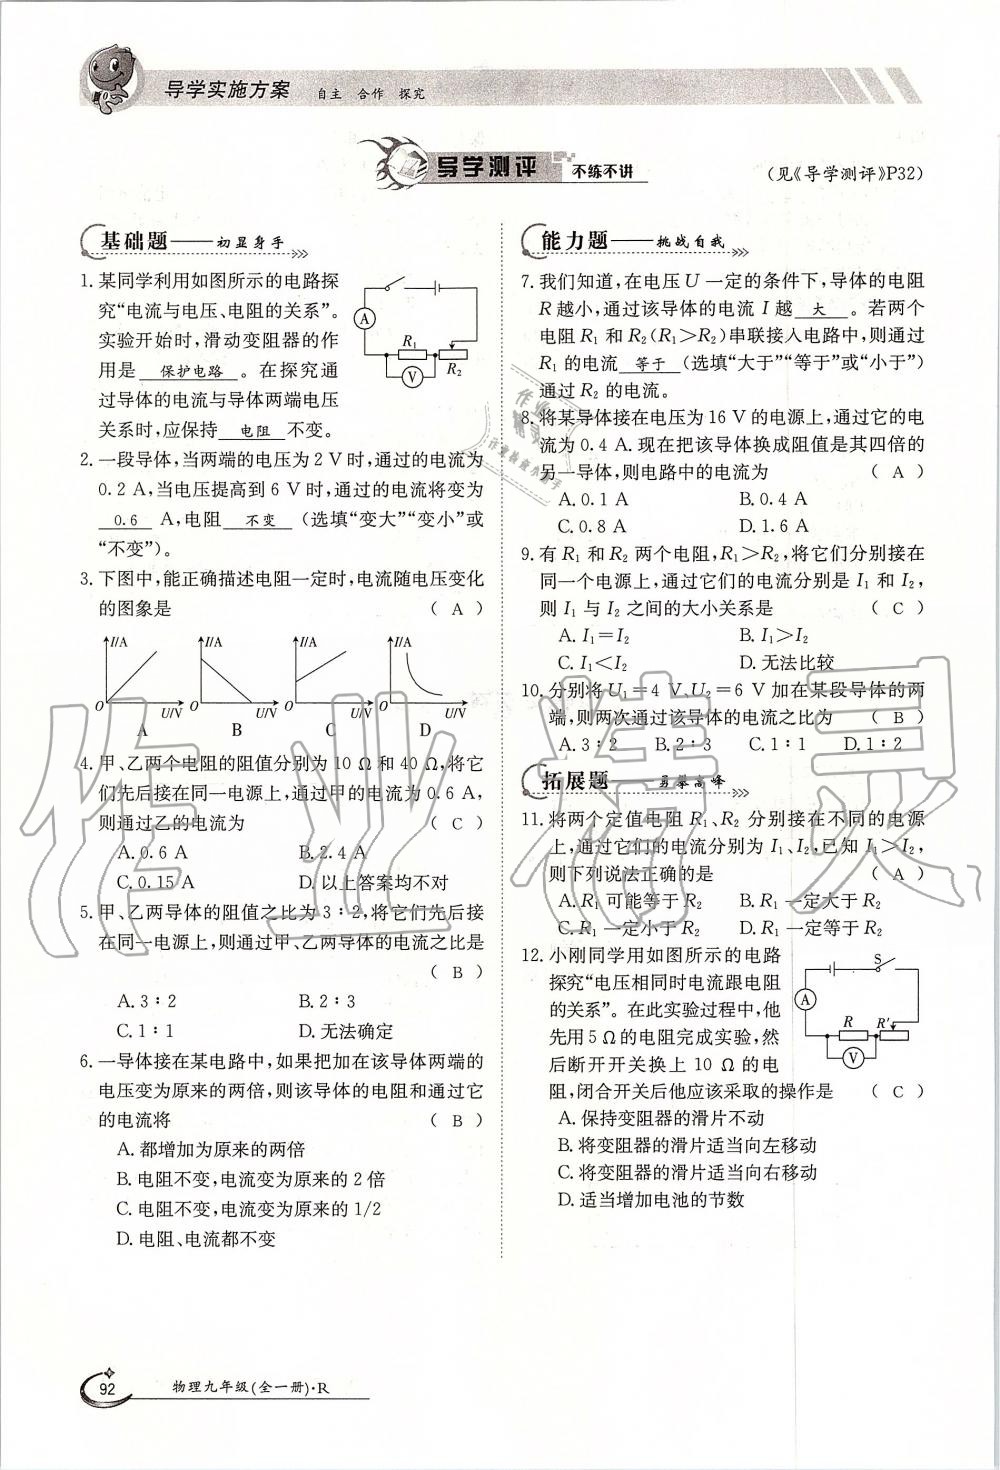 导学实施方案 自主 合作 探究
导学测评 不练不讲
(见《导学测评》P32)
基础题——初显身手
1. 某同学利用如图所示的电路探
究“电流与电压、电阻的关系”。
实验开始时,滑动变阻器的作
用是 保护电路 。在探究通
过导体的电流与导体两端电压
关系时,应保持 电阻 不变。
A
R₁
R₂
V
2. 一段导体,当两端的电压为 2 V 时,通过的电流为
0.2 A,当电压提高到 6 V 时,通过的电流将变为
0.6 A,电阻 不变 (选填“变大”“变小”或
“不变”)。
3. 下图中,能正确描述电阻一定时,电流随电压变化
的图象是 ( A )
I/A I/A I/A I/A
O U/V O U/V O U/V O U/V
A B C D
4. 甲、乙两个电阻的阻值分别为 10 Ω 和 40 Ω,将它
们先后接在同一电源上,通过甲的电流为 0.6 A,
则通过乙的电流为 ( C )
A. 0.6 A B. 2.4 A
C. 0.15 A D. 以上答案均不对
5. 甲、乙两导体的阻值之比为 3∶2,将它们先后接
在同一电源上,则通过甲、乙两导体的电流之比是
( B )
A. 3∶2 B. 2∶3
C. 1∶1 D. 无法确定
6. 一导体接在某电路中,如果把加在该导体两端的
电压变为原来的两倍,则该导体的电阻和通过它
的电流将 ( B )
A. 都增加为原来的两倍
B. 电阻不变,电流变为原来的 2 倍
C. 电阻不变,电流变为原来的 1/2
D. 电阻、电流都不变
能力题——挑战自我
7. 我们知道,在电压 U 一定的条件下,导体的电阻
R 越小,通过该导体的电流 I 越 大 。若两个
电阻 R₁ 和 R₂(R₁>R₂)串联接入电路中,则通过
R₁ 的电流 等于 (选填“大于”“等于”或“小于”)
通过 R₂ 的电流。
8. 将某导体接在电压为 16 V 的电源上,通过它的电
流为 0.4 A. 现在把该导体换成阻值是其四倍的
另一导体,则电路中的电流为 ( A )
A. 0.1 A B. 0.4 A
C. 0.8 A D. 1.6 A
9. 有 R₁ 和 R₂ 两个电阻,R₁>R₂,将它们分别接在
同一个电源上,通过它们的电流分别是 I₁ 和 I₂,
则 I₁ 与 I₂ 之间的大小关系是 ( C )
A. I₁=I₂ B. I₁>I₂
C. I₁<I₂ D. 无法比较
10. 分别将 U₁=4 V、U₂=6 V 加在某段导体的两
端,则两次通过该导体的电流之比为 ( B )
A. 3∶2 B. 2∶3 C. 1∶1 D. 1∶2
拓展题——勇攀高峰
11. 将两个定值电阻 R₁、R₂ 分别接在不同的电源
上,通过它们的电流分别为 I₁、I₂,已知 I₁>I₂,
则下列说法正确的是 ( A )
A. R₁ 可能等于 R₂ B. R₁ 一定大于 R₂
C. R₁ 一定小于 R₂ D. R₁ 一定等于 R₂
12. 小刚同学用如图所示的电路
探究“电压相同时电流跟电阻
的关系”。在此实验过程中,他
先用 5 Ω 的电阻完成实验,然
后断开开关换上 10 Ω 的电
阻,闭合开关后他应该采取的操作是 ( C )
S
A
R R′
V
A. 保持变阻器的滑片不动
B. 将变阻器的滑片适当向左移动
C. 将变阻器的滑片适当向右移动
D. 适当增加电池的节数
92 物理九年级(全一册)·R
作业精灵